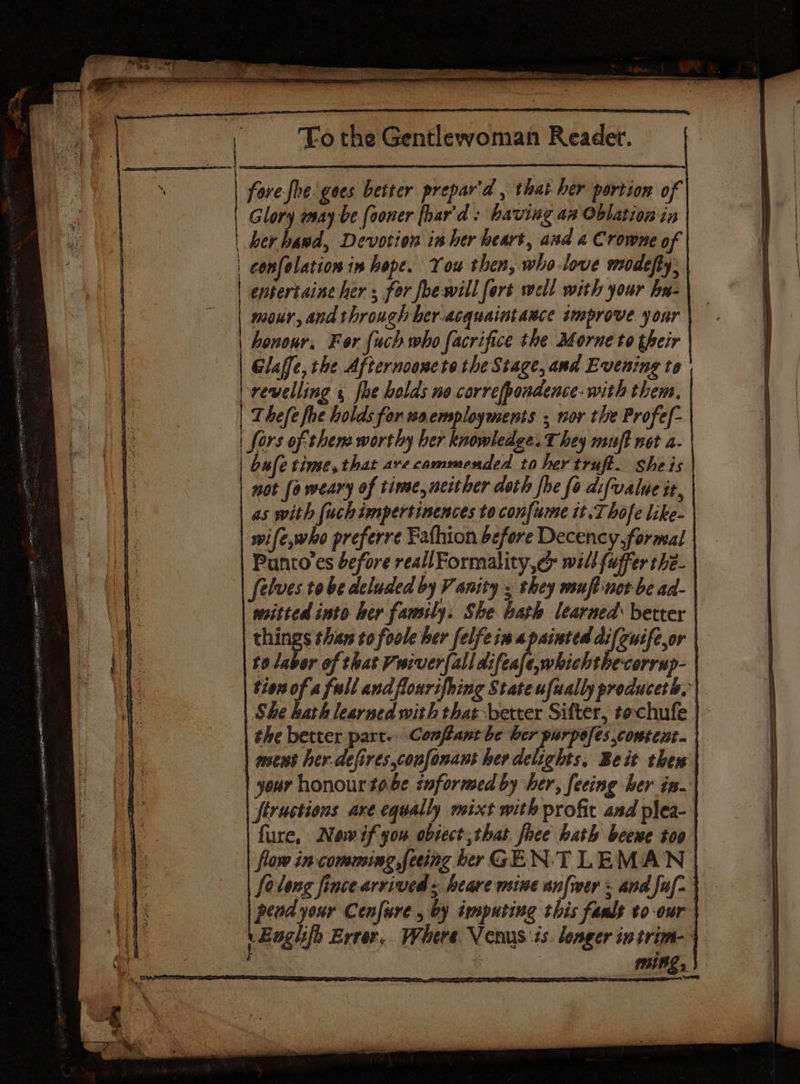 To the Gentlewoman Reader.
fore ſhe goes better prepar'd, that her portion of
Glory may be ſooner ſhar'd: having an Oblation in
her hand, Devotion in her heart, and a Crowne of
conſolation in hope. You then, who love modeſty,
entertaine her; for ſhe will ſort well with your hu-
mour, and through her acquaintance improve your
honour. For ſuch who ſacrifice the Morne to their
Glaſſe, the Afternoone to the Stage, and Evening to
revelling; ſhe holds no correſpondence with them.
Theſe ſhe holds for no employments; nor the Profeſ-
ſors of them worthy her knowledge. They muſt not a-
buſe time, that are commended to her truſt. She is
not ſo weary of time, neither doth ſhe ſo diſvalue it,
as with ſuch impertinences to conſume it. Thoſe like-
wiſe, who preferre Faſhion before Decency, formal
Punto'es before reall Formality, & will ſuffer thē-
ſelves to be deluded by Vanity; they muſt not be ad-
mitted into her family. She hath learned better
things than to foole her ſelfe in a painted diſguiſe, or
to labor of that Vniverſall diſeaſe, which the corrup-
tion of a full and flouriſhing State uſually produceth.
She hath learned with that better Siſter, to chuſe
the better part. Conſtant be her purpoſes, content-
ment her deſires, conſonant her delights. Be it then
your honour to be informed by her, ſeeing her in-
ſtructions are equally mixt with profit and plea-
ſure. Now if you obiect, that ſhee hath beene too
ſlow in comming, ſeeing her GENTLEMAN
ſo long ſince arrived; heare mine anſwer; and ſuſ-
pend your Cenſure, by imputing this fault to our
Engliſh Error. Where Venus is longer in trim-
ming,